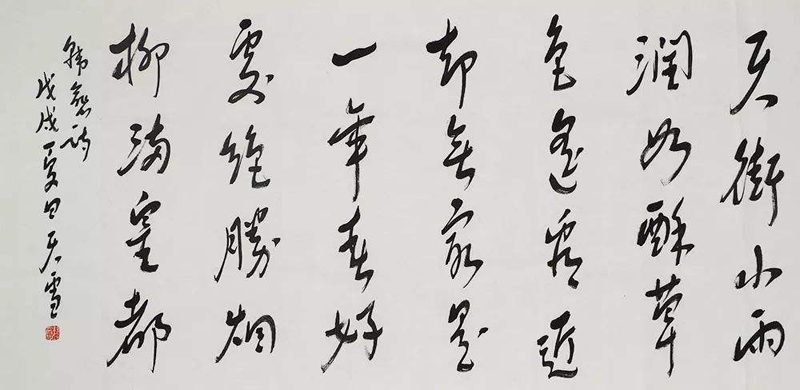 天街小雨
润如酥草
色遥看近
却无家是
一年春好
处绝胜烟
柳满皇都
韩愈诗
戊戌夏日天雪